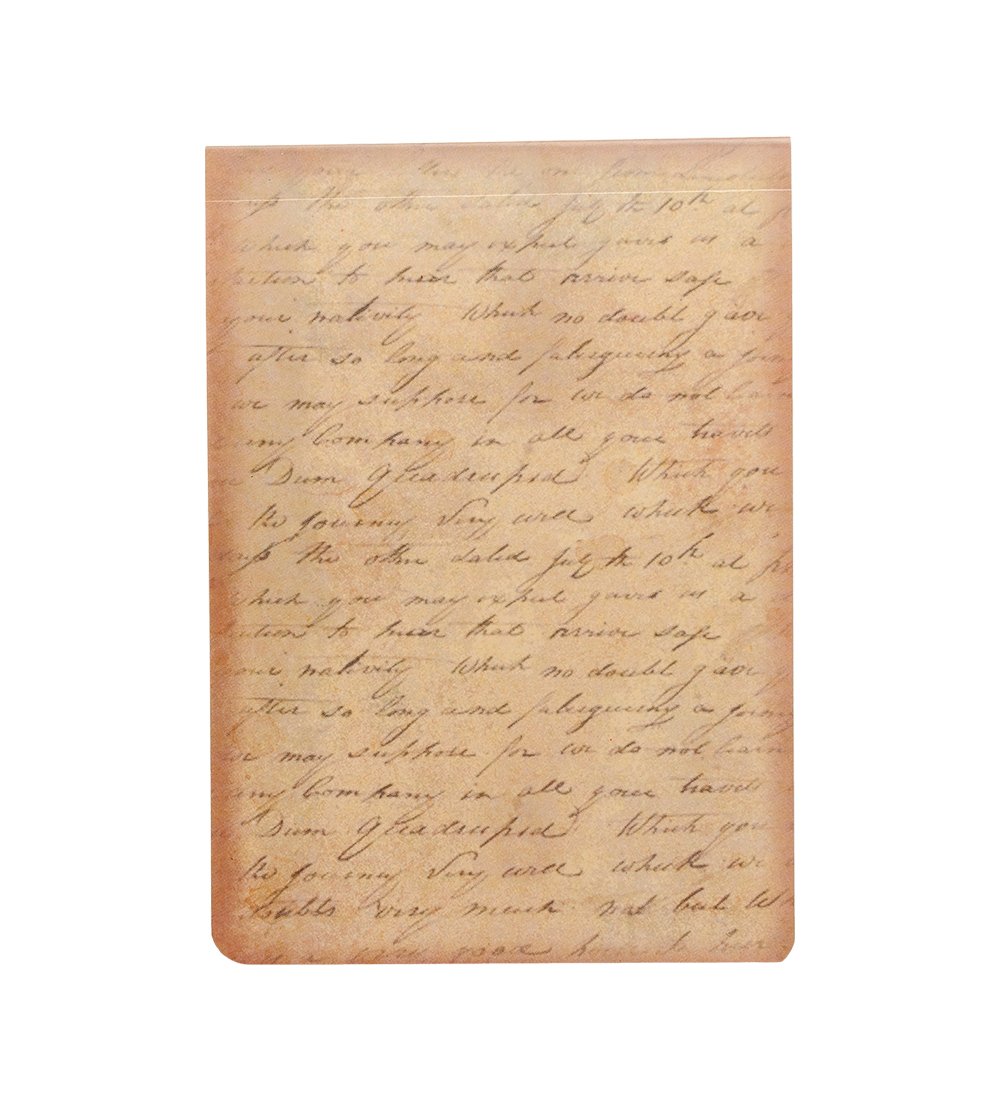 your
the other dated July th 10th at
which you may expect gave us a
to hear that arrive safe
your nativity Which no doubt gave
after so long and fatiegueing a
we may suppose for we do not learn
any Company in all your travels
Dum Quadruped Which you
the journey Very well which we
the other dated July th 10th at
which you may expect gave us a
to hear that arrive safe
your nativity Which no doubt gave
after so long and fatiegueing a
we may suppose for we do not learn
any Company in all your travels
Dum Quadruped Which you
the journey Very well which we
very much not but
a